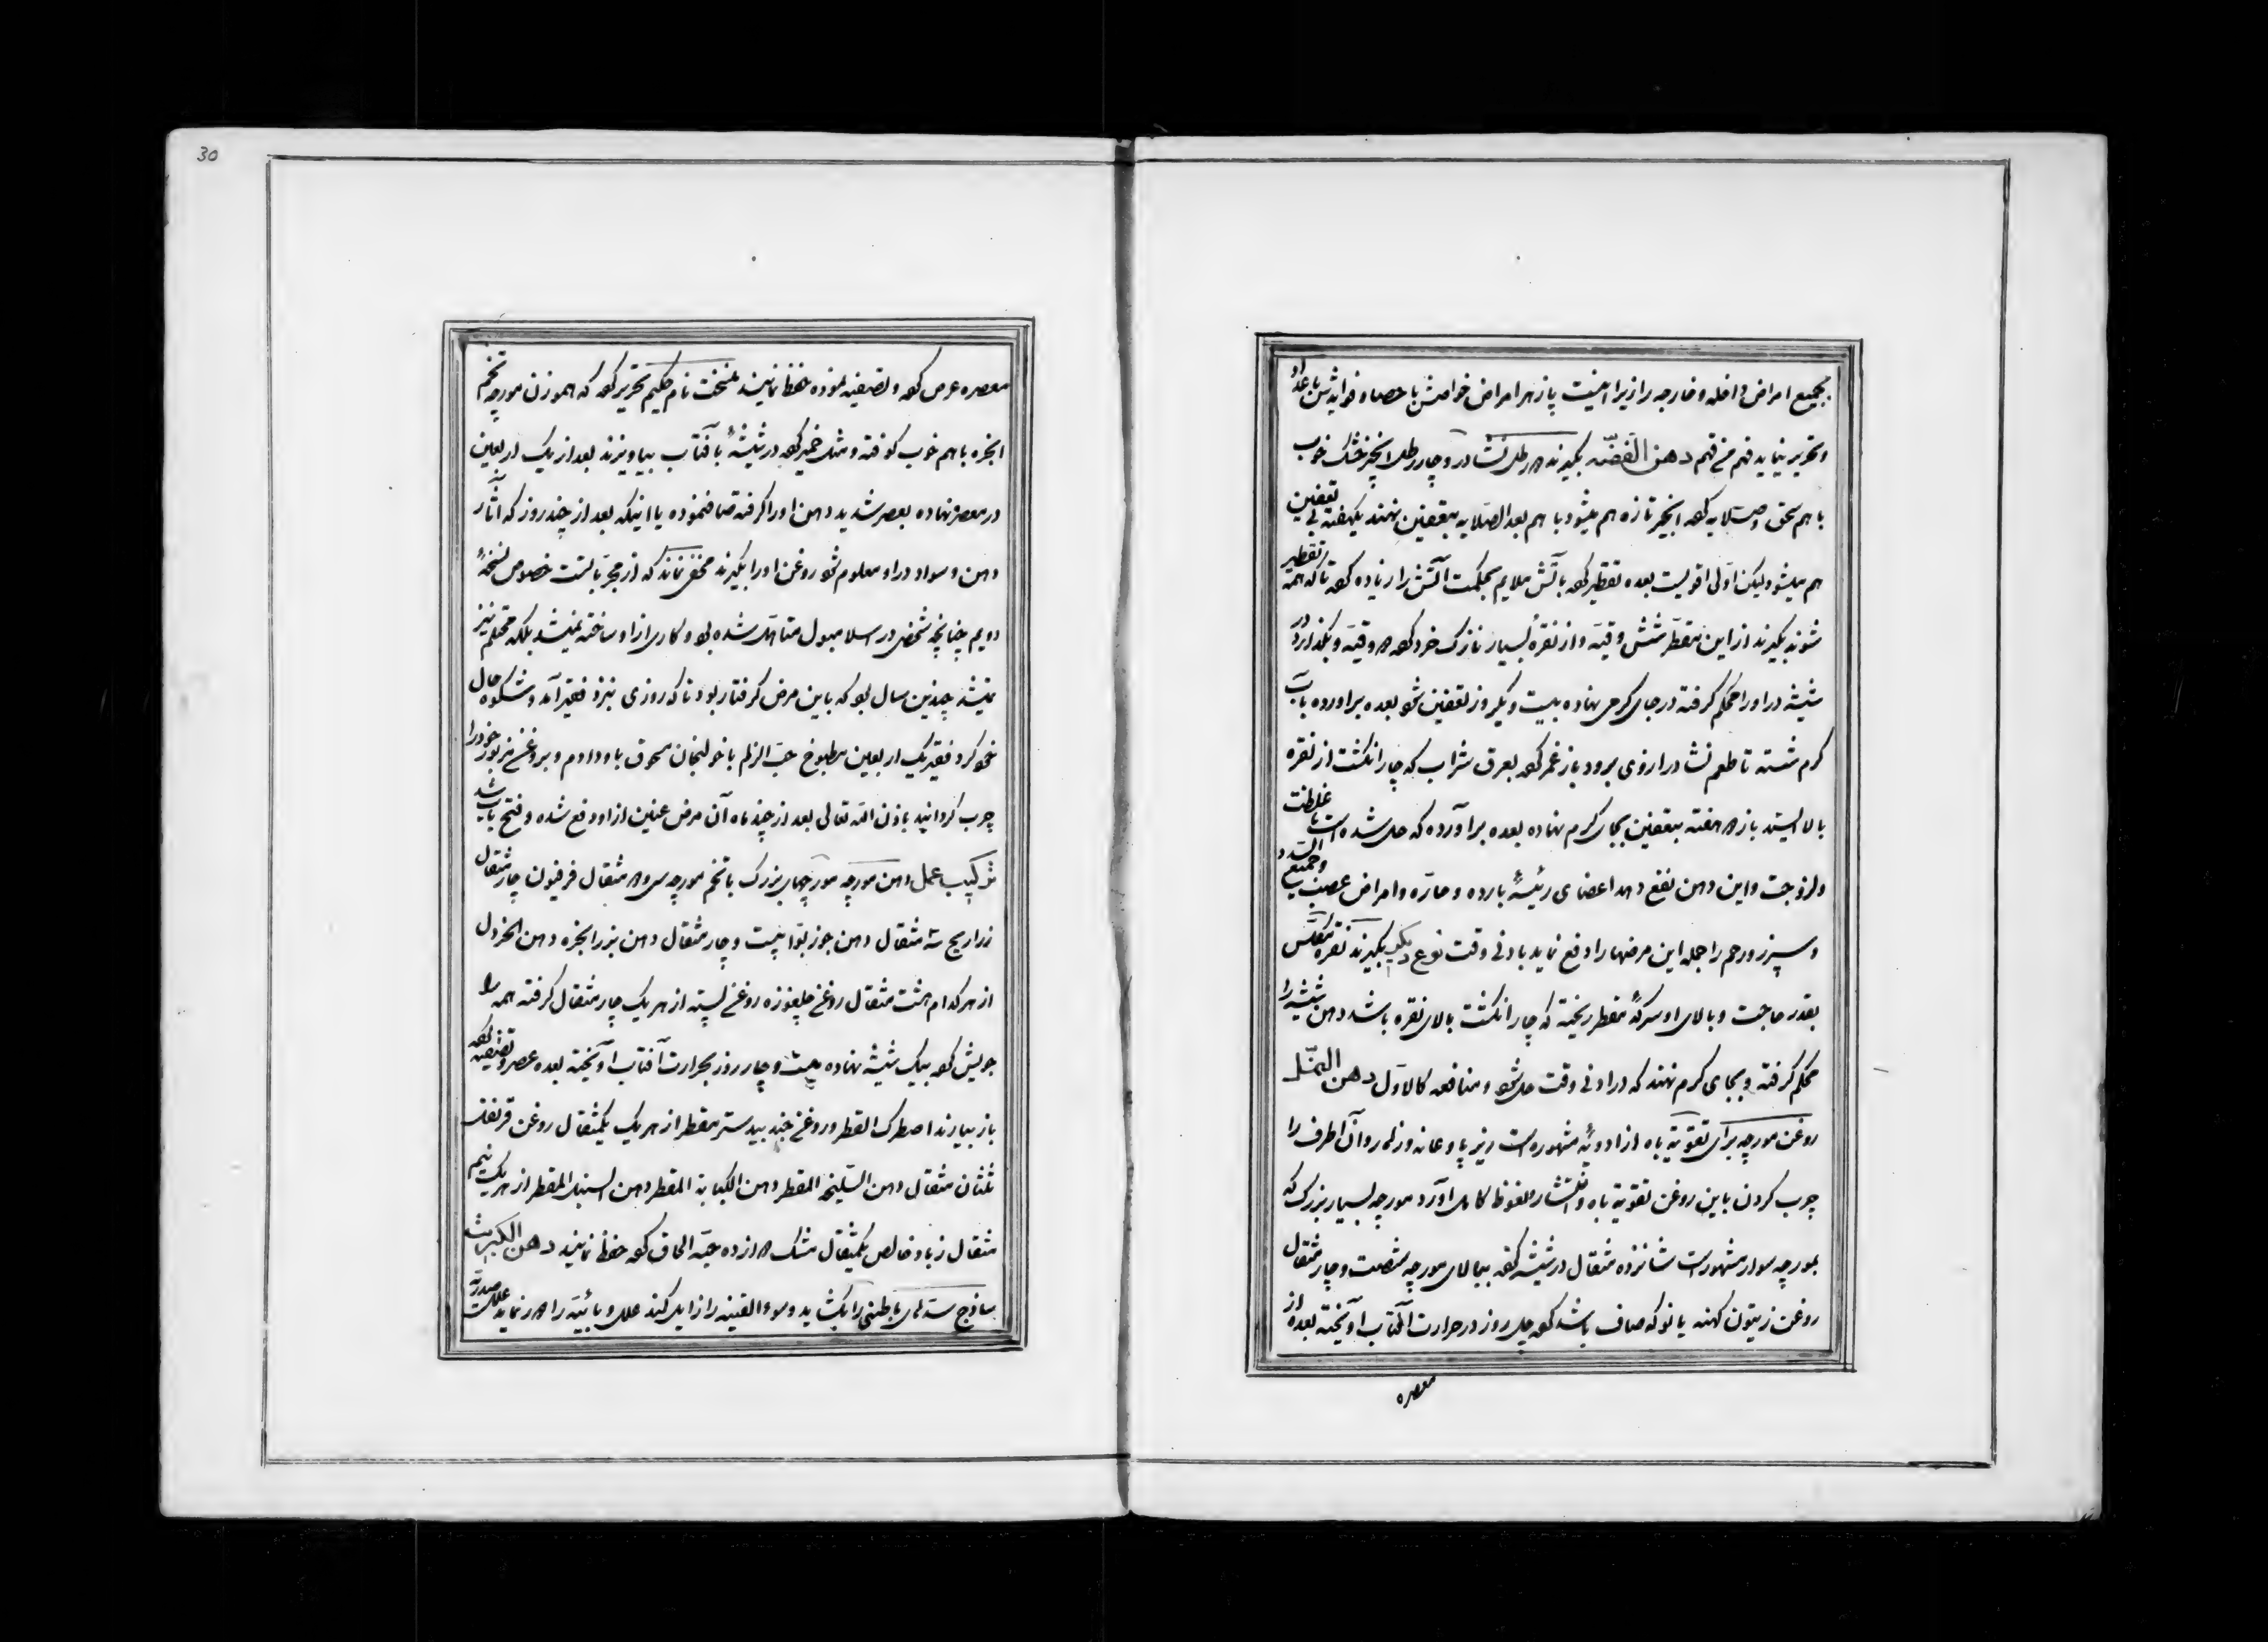 بجمیع امراض داخله و خارجه را زیرا اینست پازهر امراض خواصش با حصا و فوایدش با عداد
و تحریر نیاید فهم من فهم دهن الفضّه بکیرند ۲ رطل نشادر و چار رطل انجیر خشک خوب
با هم سحق و صلایه کرده انجیر تازه هم میشود با هم بعد الصلایه بتعفین نهند یکهفته بی تعفین
هم میشود لیکن اولی اقویست بعده تقطیر کرده باتش ملایم بحکمت آتش را زیاده کرده تا که همه تقطیر
شوند بکیرند از این متقطر شش وقیه و از نقرهٔ بسیار نازک خرد کرده ۲ وقیه و بکذارد در
شیشه در او را محکم کرفته در جای کرمی نهاده بیست و یکروز تعفین شود بعده براورده بآب
کرم شسته تا طعم نشادر از روی برود باز غمر کرده بعرق شراب که چار انکشت از نقره
بالا ایستد باز ۲ هفته بتعفین بجای کرم نهاده بعده برآورده که حل شده است با غلظت
و لزوجت و این دهن نفع دهد اعضای رئیسهٔ بارده و حارّه و امراض عصب و جمیع السدد
و سپرز و رحم را جمله این مرضها را دفع نماید باذنی وقت نوع دیکر بکیرند نقره مکلّس
بقدر حاجت و بالای او سرکهٔ مقطر ریخته که چار انکشت بالای نقره باشد دهن شیشه را
محکم کرفته و بجای کرم نهند که در ادنی وقت حل شود و منافعه کالاوّل دهن النمل
روغن مورچه برای تقویة باه از ادویهٔ مشهوره است زیر پا و عانه و زهار و آن اطرف را
چرب کردن باین روغن تقویة باه و انتشار و نعوظ کامل آورد مورچه بسیار بزرک که
بمورچه سوار مشهور است شانزده مثقال در شیشه کرده ببالای مورچه شصت و چار مثقال
روغن زیتون کهنه یا نو که صاف باشد کرده چل روز در حرارت آفتاب آویخته بعده از
معصره
30
معصره عرص کرده و تصفیه نموده حفظ نمایند بنسخت نام حکیم تحریر کرده که هموزن مورچه تخم
انجره با هم خوب کوفته و مثل خمیر کرده در شیشهٔ بآفتاب بیاویزند بعد از یک اربعین
در معصره نهاده بعصر شدید دهن او را کرفته صاف نموده یا اینکه بعد از چند روز که آثار
دهن و سواد در او معلوم شود روغن او را بکیرند مخفی نماند که از مجرّباتست خصوص نسخهٔ
دویم چنانچه شخصی در اسلامبول متاهّل شده بود و کاری از او ساخته نمیشد بلکه محتلم نیز
نمیشد چندین سال بود که باین مرض کرفتار بود تا که روزی نزد فقیر آمد و شکوه حال
خود کرد فقیر یک اربعین مطبوخ حبّ الزلم با خولنجان مسحوق باو دادم و بروغن مزبور خود را
چرب کردانید باذن الله تعالی بعد از چند ماه آن مرض عنین از او دفع شده و فتح باب شد
ترکیب عمل دهن مورچه مورچهای بزرک با تخم مورچه سی و ۲ مثقال فرفیون چار مثقال
زراریح سه مثقال دهن جوز بوّا بیست و چار مثقال دهن بزر انجره دهن الخردل
از هر کدام هشت مثقال روغن چلغوزه روغن پسته از هر یک چار مثقال کرفته همه را
جویش کرده بیک شیشه نهاده بیست و چار روز بحرارت آفتاب آویخته بعده عصر و تصفیه کرده
باز بیارند اصطرک القطر و روغن جند بیدستر مقطر از هر یک یکمثقال روغن قرنفل
ثلثان مثقال دهن السلیخه المقطر دهن الکبابة المقطر دهن السنبل المقطر از هر یک نیم
مثقال زباد خالص یکمثقال مشک ۲ ازده حبّه الحاق کرده حفظ نمایند دهن الکبریت
ساذج سدّهای باطنی را بکشاید و سوء القنیه را زایل کند علل وبائیّه را ۲ر نماید علل صدریّه